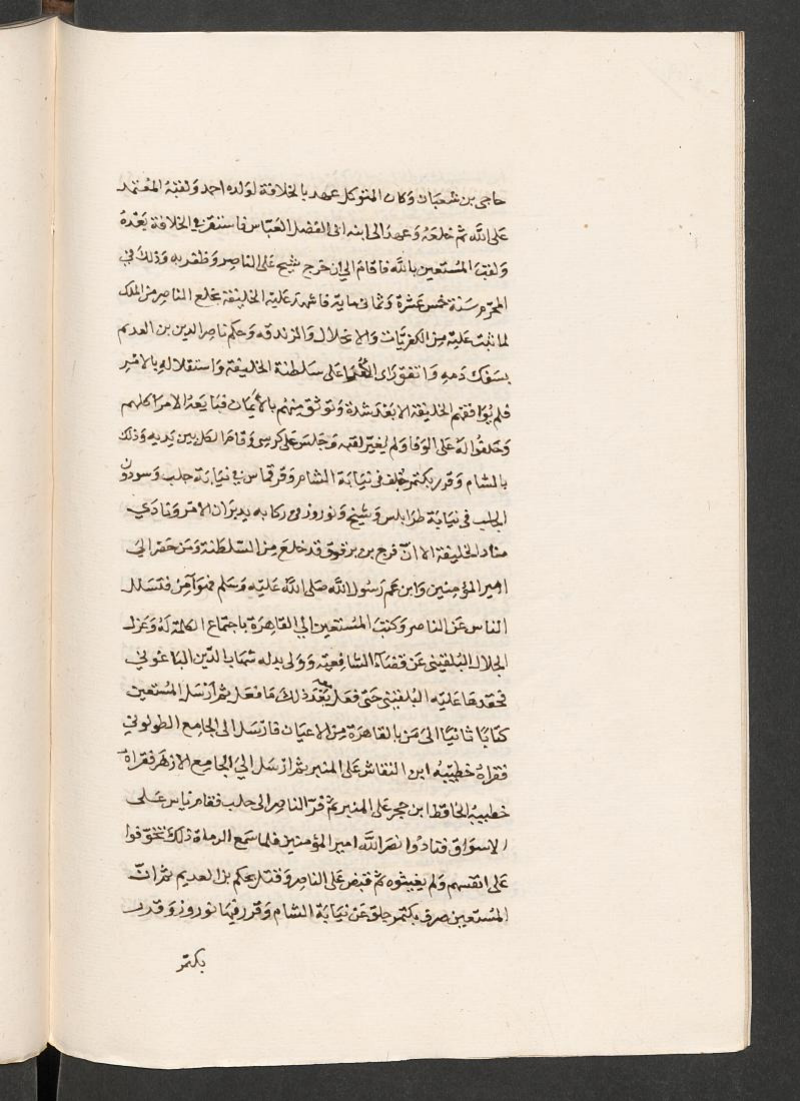 حاجى بن شعبان وكان المتوكل عهد بالخلافة لولده احمد ولقبه المعتمد
على الله ثم خلعه وعهد الى ابنه ابى الفضل العباس فاستقر في الخلافة بعده
ولقب المستعين بالله فاقام الي ان خرج شيخ على الناصر وظفر به وذلك في
المحرم سنة خمس عشرة وثمانى ماية فاشهد عليه الخليفة بخلع الناصر من الملك
لما ثبت عليه من الكفريات والانحلال والزندقه وحكم ناصر الدين بن العديم
بسفك دمه واتفق راى العلما على سلطنة الخليفة واستقلاله بالامر
فلم يوافقهم الخليفة الا بعد شدة وتوثق منهم بالأيمان فبايعه الامرا كلهم
وحلفوا له على الوفا ولم يغير لقبه وجلس على كرسى وقام الكل بين يديه وذلك
بالشام وقرر بكتمر جلق في نيابة الشام وقرقماس في نيابة حلب وسودون
الجلب في نيابة طرابلس وشيخ ونوروز في ركابه يدبران الامر ونادي
مناد الخليفة الا انّ فرج بن برقوق قد خلع من السلطنة ومن حضر الي
امير المؤمنين وابن عم رسول الله صلى الله عليه وسلم فهو آمن فتسلل
الناس عن الناصر وكتب المستعين الي القاهرة باجتماع الكلمة له وعزل
الجلال البلقينى عن قضاء الشافعيه وولى بدله شهاب الدين الباعوني
فحقدها عليه البلقينى حتى فعل بعد ذلك ما فعل ثم ارسل المستعين
كتابا ثانيا الى من بالقاهرة من الاعيان فارسل الى الجامع الطولوني
فقراه خطيبه ابن النقاش على المنبر ثم ارسل الي الجامع الازهر فقراه
خطيبه الحافظ ابن حجر على المنبر ثم فرّ الناصر الى حلب فقام ناس على
الاسواق فنادوا نصر الله امير المؤمنين فلما سمع الرماة ذلك تخوفوا
على انفسهم ولم يغيثوه ثم قبض على الناصر وقتل بحكم بن العديم ثم انّ
المستعين صرف بكتمر جلق عن نيابة الشام وقرر فيها نوروز وقدر
بكتمر